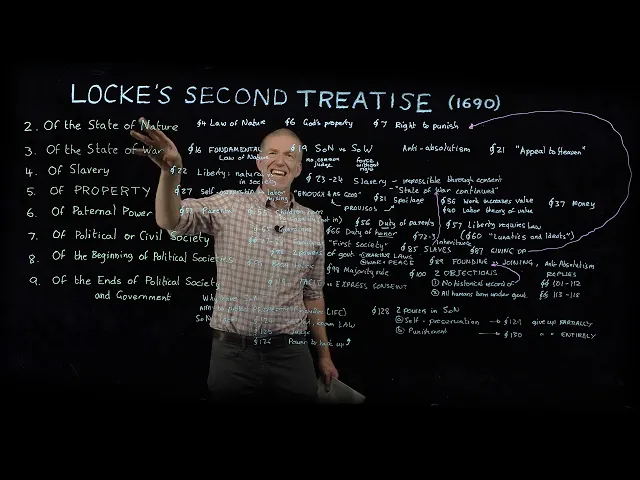 LOCKE'S SECOND TREATISE (1690)
2. Of the State of Nature §4 Law of Nature §6 God's property §7 Right to punish
3. Of the State of War §16 FUNDAMENTAL Law of Nature §19 SoN vs SoW no common judge force without right Anti-absolutism §21 "Appeal to Heaven"
4. Of Slavery §22 Liberty: natural in society §23-24 Slavery - impossible through consent
"State of war continued"
5. Of PROPERTY §27 Self-ownership labor mixing "ENOUGH & AS GOOD" §31 Spoilage §36 Work increases value §37 Money
PROVISOS §40 Labor theory of value
6. Of Paternal Power §56 Duty of parents §57 Liberty requires Law
§66 Duty of honor §72-3 Inheritance (§60 "Lunatics and Idiots")
7. Of Political or Civil Society "First society" §85 SLAVES §87 GIVING UP
8. Of the Beginning of Political Societies 2 powers of govt. WAR + PEACE §89 FOUNDING vs JOINING, Anti Absolutism
TACIT vs EXPRESS CONSENT §99 Majority rule §100 2 OBJECTIONS REPLIES
① No historical record of §§ 101-112
② All humans born under govt. §§ 113-118
9. Of the Ends of Political Society and Government Why leave SoN §128 2 powers in SoN
known LAW ① Self-preservation → §129 give up PARTIALLY
§125 Judge ② Punishment → §130 " " ENTIRELY
§126 Power to back up